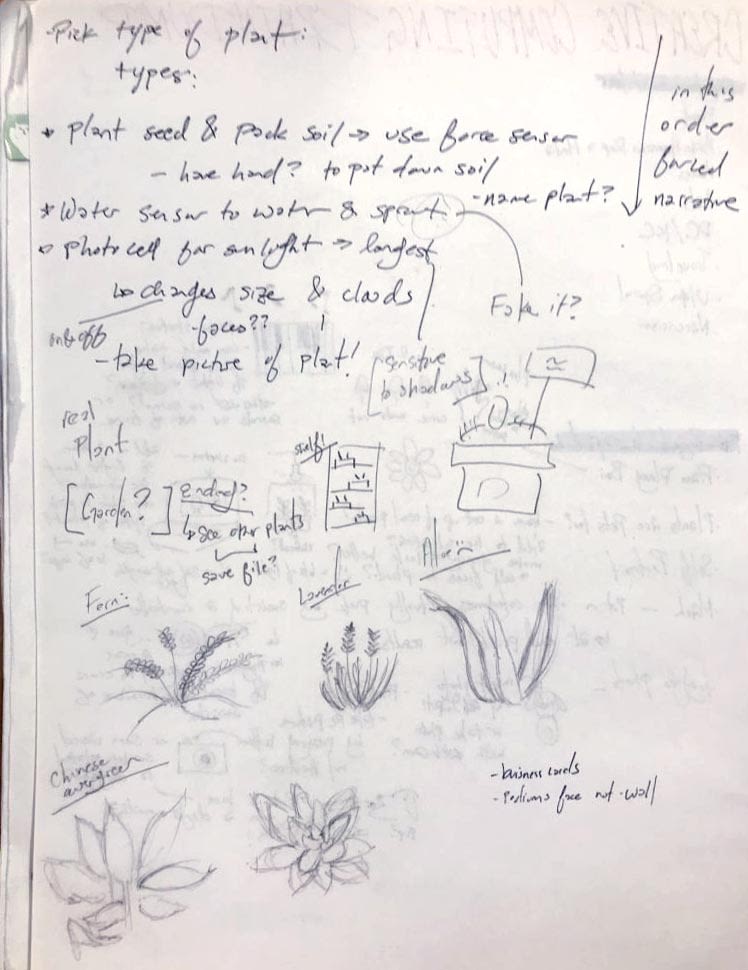 -Pick type of plant:
types:
* plant seed & pack soil → use force sensor
- have hand? to pot down soil
* Water sensor to water & sprout
- name plant?
photocell for sunlight → largest
↳ changes size & clouds
- faces??
on & off
- take picture of plant!
in this
order
forced
narrative
Fake it?
[sensitive
to shadows]
real
Plant
[Garden?]
Ending?
↳ see other plants
save file?
shelf?
Fern:
Lavender
Aloe:
Chinese
evergreen
- business cards
- Podiums face not wall